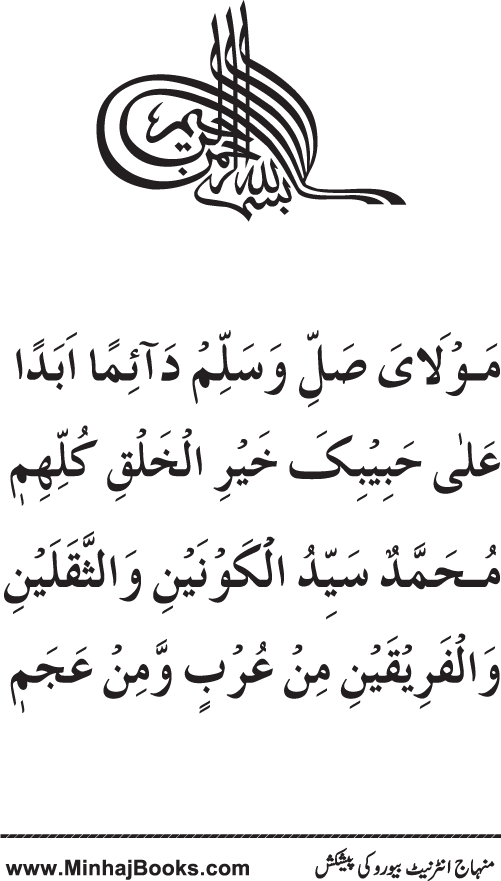 بسم الله الرحمن الرحيم
مَوْلَايَ صَلِّ وَسَلِّمْ دَآئِمًا اَبَدًا
عَلٰی حَبِيْبِکَ خَيْرِ الْخَلْقِ کُلِّهِمِ
مُحَمَّدٌ سَيِّدُ الْکَوْنَيْنِ وَالثَّقَلَيْنِ
وَالْفَرِيْقَيْنِ مِنْ عُرْبٍ وَّمِنْ عَجَمِ
www.MinhajBooks.com منہاج انٹرنیٹ بیورو کی پیشکش